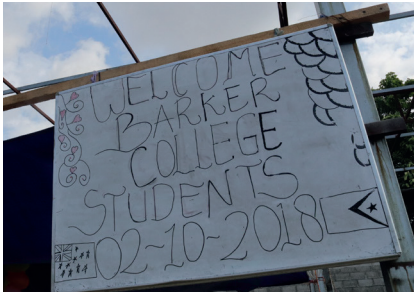 WELCOME
BARKER
COLLEGE
STUDENTS
02-10-2018